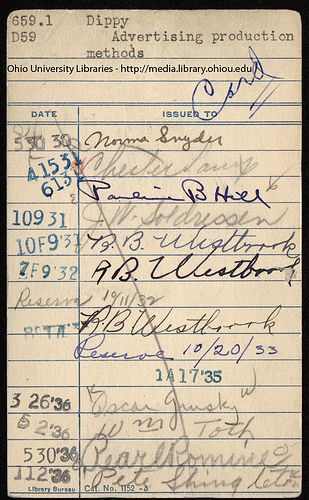 659.1 Dippy
D59 Advertising production
methods
Ohio University Libraries - http://media.library.ohiou.edu
Card
DATE ISSUED TO
530 30 Norma Snyder
41531 Chester
6131 Pauline B Hill
10931 J.W.
10F9'31 R. B. Westbrook
7F9'32 R B Westbrook
Reserve 10/11/32
R B Westbrook
Reserve 10/20/33
1A17'35
3 26'36 "Oscar Grusky"
5 2'36 W M Toth
530'36 Pearl Romine
112'36 Pete Shingleton
Library Bureau Cat. No. 1152